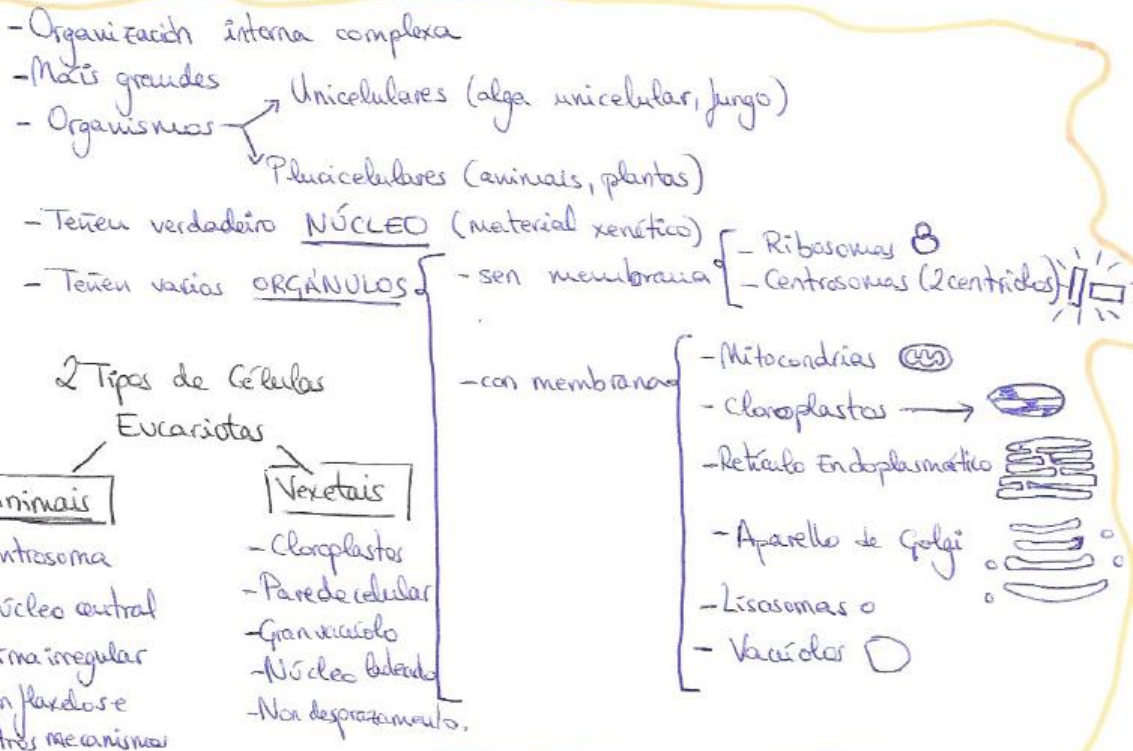 - Organización interna complexa
- Máis grandes
- Organismos
Unicelulares (alga unicelular, fungo)
Pluricelulares (animais, plantas)
- Teñen verdadeiro NÚCLEO (material xenético)
- Teñen varios ORGÁNULOS
- sen membrana
- Ribosomas
- Centrosomas (2 centriolos)
- con membrana
- Mitocondrias
- Cloroplastos
- Retículo Endoplasmático
- Aparello de Golgi
- Lisosomas
- Vacúolos
2 Tipos de Células
Eucariotas
nimais
ntrosoma
úcleo central
rma irregular
n flaxelos e
tros mecanismos
Vexetais
- Cloroplastos
- Parede celular
- Gran vacúolo
- Núcleo ladeado
- Non desprazamento.